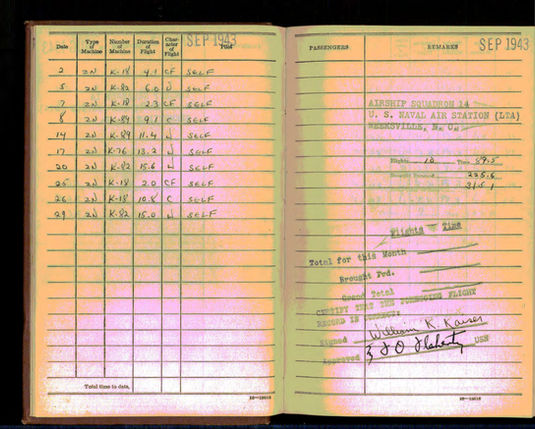 SEP 1943
Date Type of Machine Number of Machine Duration of Flight Character of Flight Pilot
2 ZN K-18 4.1 CF SELF
5 ZN K-82 6.0 N SELF
7 ZN K-18 2.3 CF SELF
8 ZN K-84 9.1 C SELF
14 ZN K-89 11.4 N SELF
17 ZN K-76 13.2 N SELF
20 ZN K-82 15.6 N SELF
25 ZN K-18 2.0 CF SELF
26 ZN K-18 10.8 C SELF
29 ZN K-82 15.0 N SELF
Total time to date,
16—12615
PASSENGERS REMARKS SEP 1943
AIRSHIP SQUADRON 14
U. S. NAVAL AIR STATION (LTA)
WEEKSVILLE, N. C.
Flights 10 Time 89.5
Brought Forward 225.6
315.1
Flights Time
Total for this Month
Brought Fwd.
Grand Total
CERTIFY THAT THE FOREGOING FLIGHT
RECORD IS CORRECT:
Signed William R. Kaiser
Approved J O Flaherty USN
16—12615